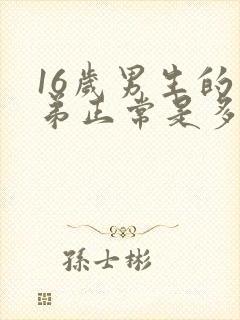 16歲男生的
弟正常是多
孫士彬